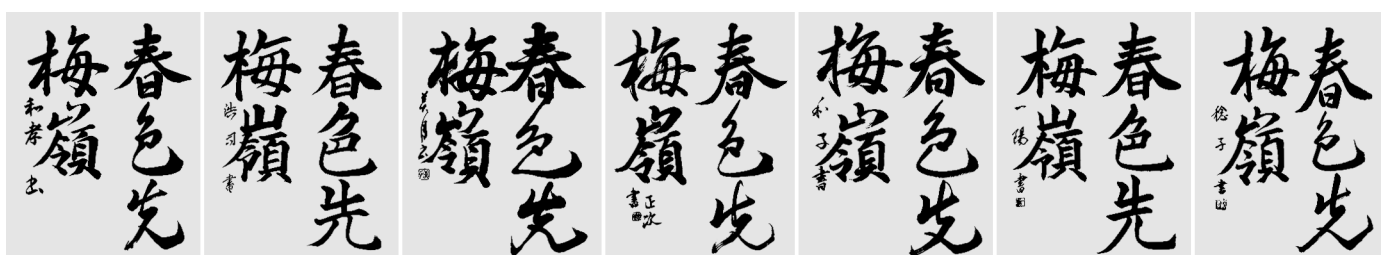 春色先
梅嶺
和孝書
春色先
梅嶺
浩司書
春色先
梅嶺
美月書
春色先
梅嶺
正次書
春色先
梅嶺
和子書
春色先
梅嶺
一楊書
春色先
梅嶺
稔子書